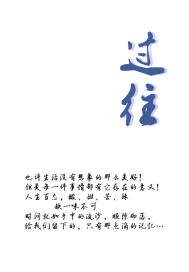 过往
也许生活没有想象的那么美好！
但是每一件事情都有它存在的意义！
人生百态，酸、甜、苦、辣
缺一味不可
时间就如手中的流沙，顺隙而落，
给我们留下的，只有那点滴的记忆…